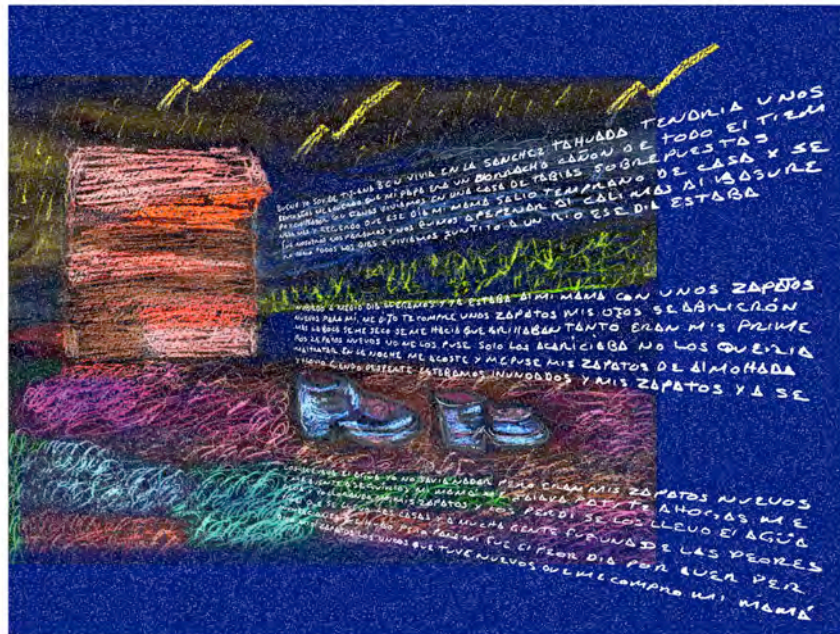 YO SOY DE TIJUANA VIVIA EN LA SANCHEZ TAHUADA TENDRIA UNOS
QUE MI PAPA ERA UN BORRACHO CAÑON DE TODO EL TIEM
VIVIAMOS EN UNA CASA DE TABLAS SOBREPUESTAS
RECUERDO QUE ESE DIA MI MAMA SALIO TEMPRANO DE CASA Y SE
FUE NOSOTROS NOS Y NOS FUIMOS A PEPENAR AL CALIMAX AL BASURE
RO COMO TODOS LOS DIAS VIVIAMOS JUNTITO A UN RIO ESE DIA ESTABA
A MEDIO DIA LLEGAMOS Y YA ESTABA AI MI MAMA CON UNOS ZAPATOS
NUEVOS PARA MI, ME DIJO TE COMPRE UNOS ZAPATOS MIS OJOS SE ABRIERÓN
MAS LA BOCA SE ME SECO SE ME HACIA QUE BRILLABAN TANTO ERAN MIS PRIME
ROS ZAPATOS NUEVOS YO NO LOS PUSE SOLO LOS ACARICIABA NO LOS QUERIA
MALTRATAR EN LA NOCHE ME ACOSTE Y ME PUSE MIS ZAPATOS DE ALMOHADA
Y LLOVIA CIENDO DERPENTE ESTABAMOS INUNDADOS Y MIS ZAPATOS YA SE
LOS LLEVABA EL YO NO SAVIA NADAR PERO ERAN MIS ZAPATOS NUEVOS
MI MAMA ME SALTE TE AHOGAS, ME
MIS ZAPATOS Y LOS PERDI SE LOS LLEVO EL AGUA
SE LLEVO CASAS Y A MUCHA GENTE FUE UNA DE LAS PEORES
PERO PARA MI FUE EL PEOR DIA POR AVER PER
ZAPATOS LOS UNICOS QUE TUVE NUEVOS QUE ME COMPRO MI MAMÁ